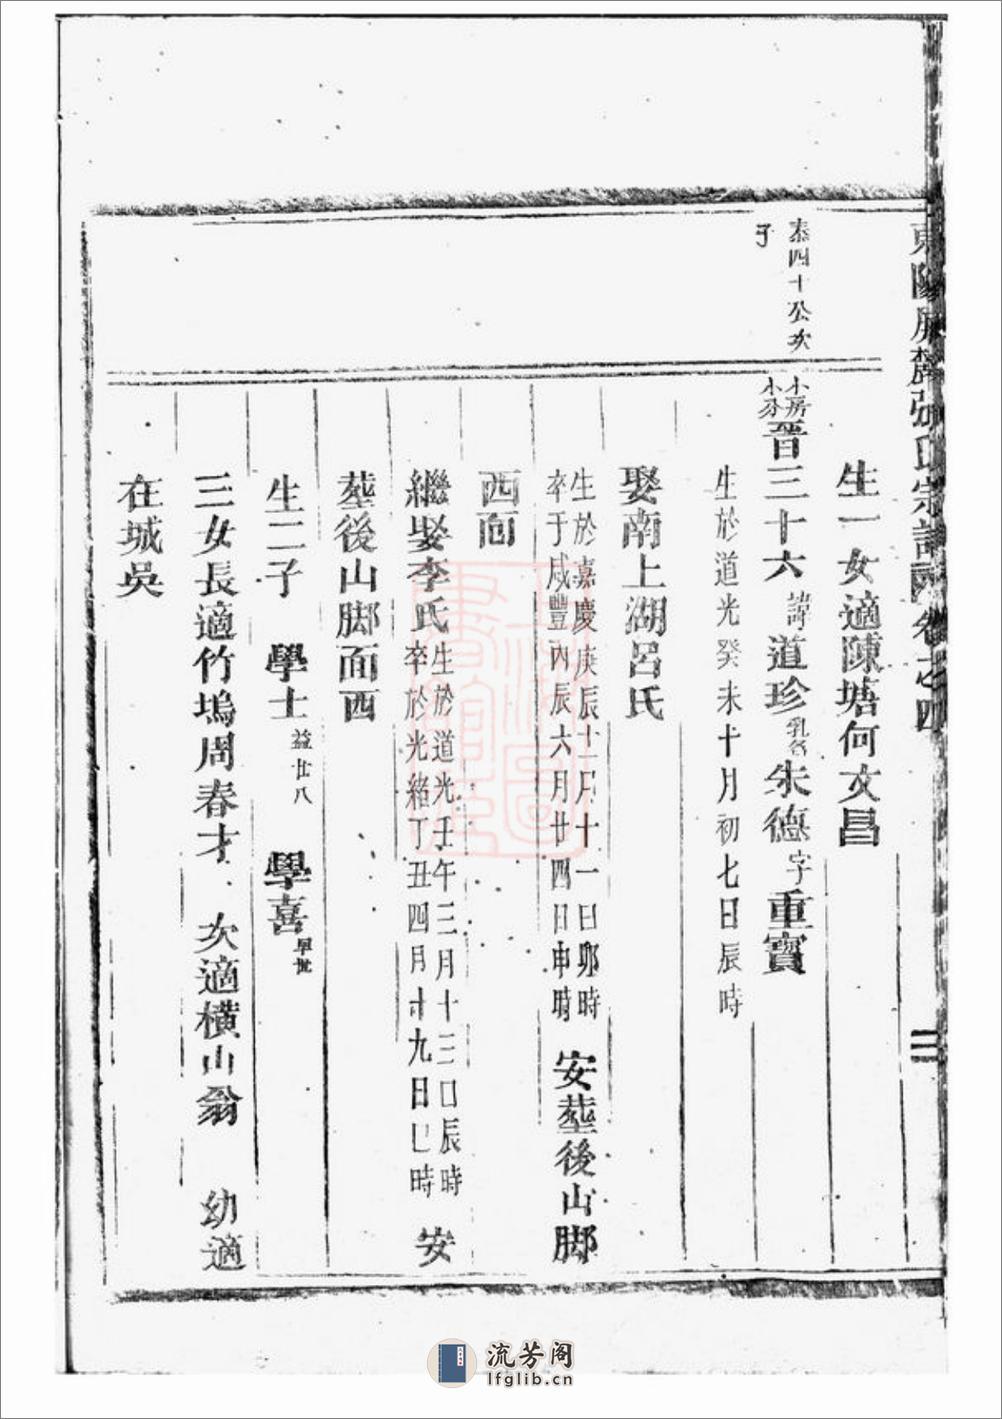 東陽屏麓張氏宗譜 卷之四
二
生一女適陳塘何文昌
泰四十公次
子
小房
小分
晉三十六諱道珍乳名朱德字重寳
生於道光癸未十月初七日辰時
娶南上湖呂氏
生於嘉慶庚辰十二月十一日卯時
卒于咸豐丙辰六月廿四日申時
安塟後山脚
西面
繼娶李氏
生於道光壬午三月十三日辰時
卒於光緒丁丑四月廿九日巳時
安
塟後山脚面西
生二子 學士益廿八 學喜早世
三女長適竹塢周春才 次適橫山翁 幼適
在城吳
浙江圖書館藏
流芳阁
lfglib.cn